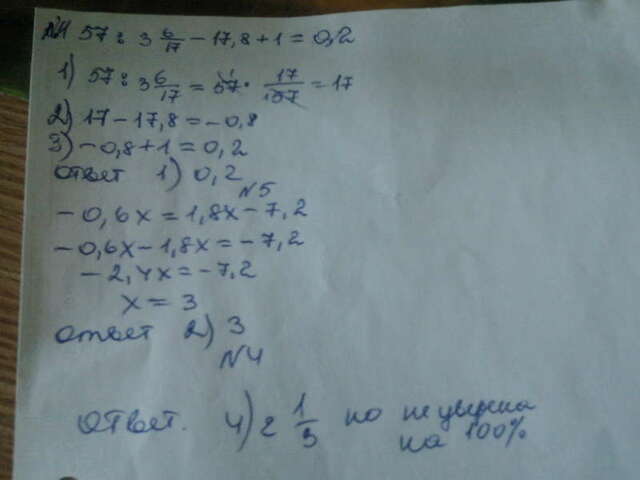 №1 57 : 3 6/17 - 17,8 + 1 = 0,2
1) 57 : 3 6/17 = 57 · 17/57 = 17
2) 17 - 17,8 = -0,8
3) -0,8 + 1 = 0,2
ответ 1) 0,2
№5
-0,6x = 1,8x - 7,2
-0,6x - 1,8x = -7,2
-2,4x = -7,2
x = 3
ответ 2) 3
№4
Ответ. 4) 2 1/3 но не уверена
на 100%